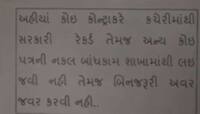 અહીંયા કોઇ કોન્ટ્રાકરે કચેરીમાંથી
સરકારી રેકર્ડ તેમજ અન્ય કોઇ
પત્રની નકલ બાંધકામ શાખામાંથી લઇ
જવી નહી તેમજ બિનજરૂરી અવર
જવર કરવી નહી..